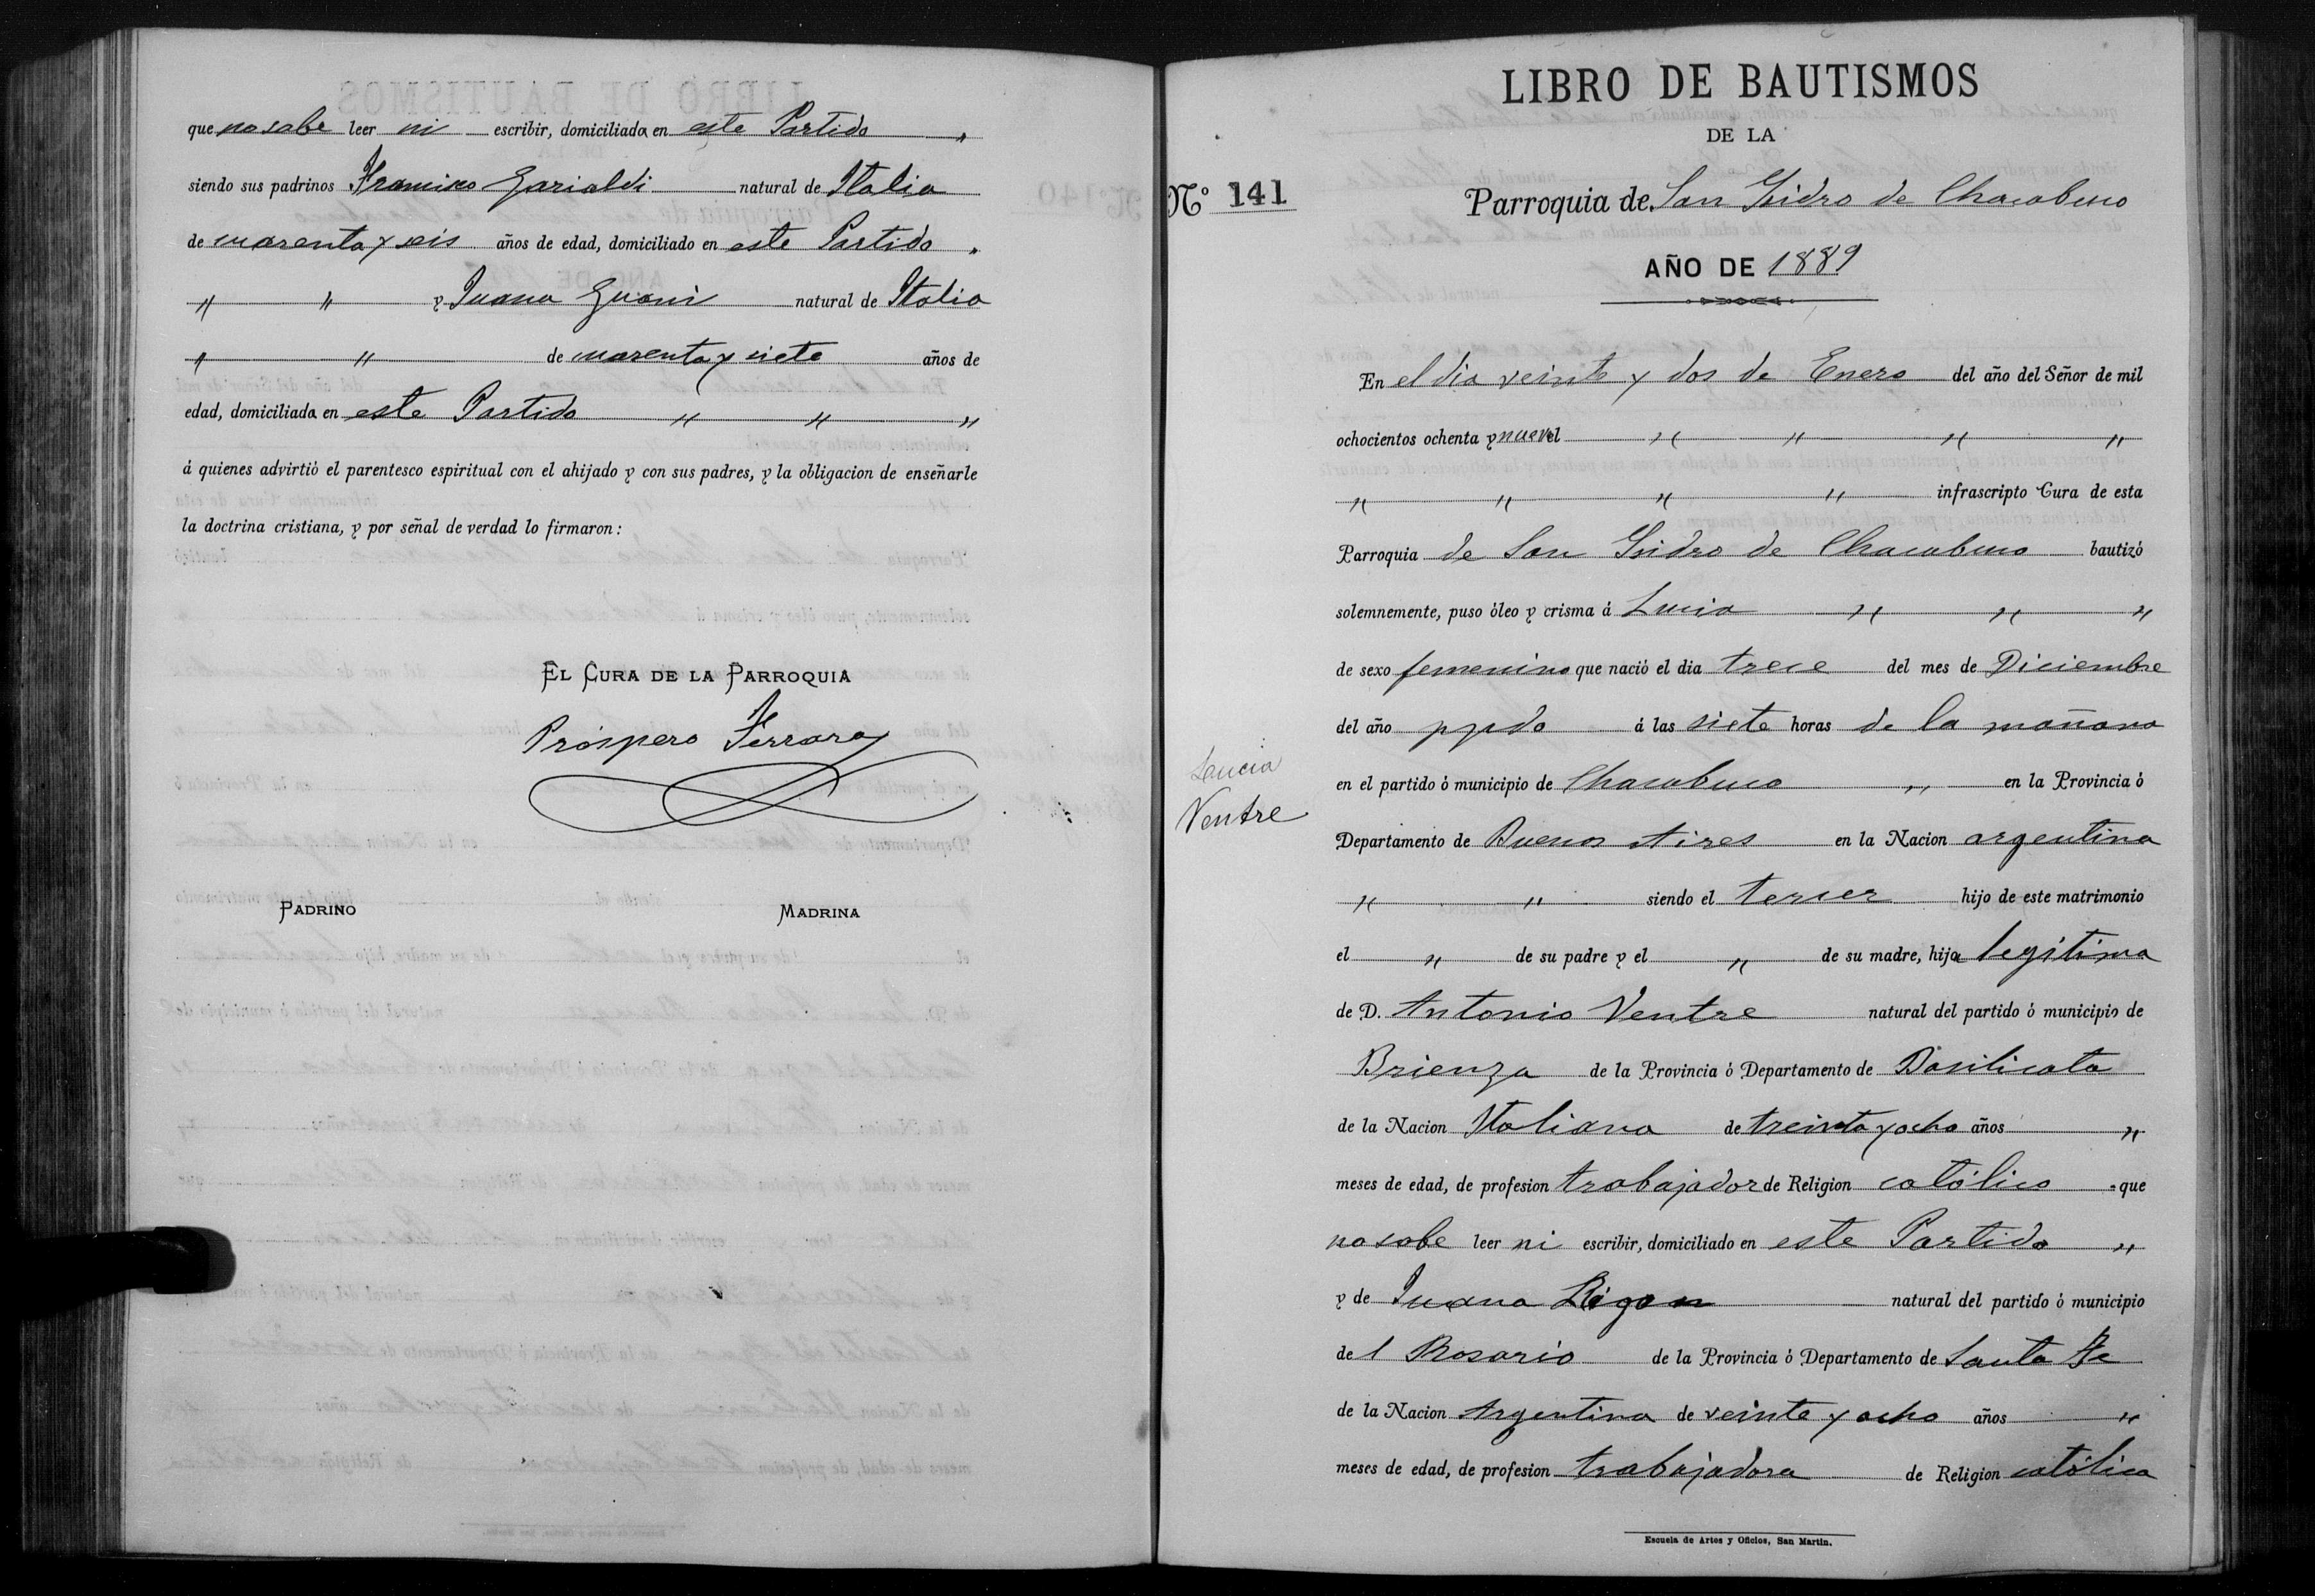 que no sabe leer ni escribir, domiciliada en este Partido "
siendo sus padrinos Francisco Garialdi natural de Italia
de cuarenta y seis años de edad, domiciliado en este Partido "
" " y Juana Guani natural de Italia
" " de cuarenta y siete años de
edad, domiciliada en este Partido " " "
á quienes advirtió el parentesco espiritual con el ahijado y con sus padres, y la obligacion de enseñarle
la doctrina cristiana, y por señal de verdad lo firmaron:
EL CURA DE LA PARROQUIA
Próspero Ferrara
PADRINO MADRINA
LIBRO DE BAUTISMOS
DE LA
Nº 141
Parroquia de San Isidro de Chacabuco
AÑO DE 1889
En el dia veinte y dos de Enero del año del Señor de mil
ochocientos ochenta y nueve el " " " "
" " " " infrascripto Cura de esta
Parroquia de San Isidro de Chacabuco bautizó
solemnemente, puso óleo y crisma á Lucia " " "
de sexo femenino que nació el dia trece del mes de Diciembre
del año ppdo á las siete horas de la mañana
Lucia
Ventre
en el partido ó municipio de Chacabuco " en la Provincia ó
Departamento de Buenos Aires en la Nacion argentina
" " siendo el tercer hijo de este matrimonio
el " de su padre y el " de su madre, hija legítima
de D. Antonio Ventre natural del partido ó municipio de
Brienza de la Provincia ó Departamento de Basilicata
de la Nacion Italiana de treinta y ocho años "
meses de edad, de profesion trabajador de Religion católico que
no sabe leer ni escribir, domiciliado en este Partido "
y de Juana Rigon natural del partido ó municipio
del Rosario de la Provincia ó Departamento de Santa Fe
de la Nacion Argentina de veinte y ocho años "
meses de edad, de profesion trabajadora de Religion católica
Escuela de Artes y Oficios, San Martin.